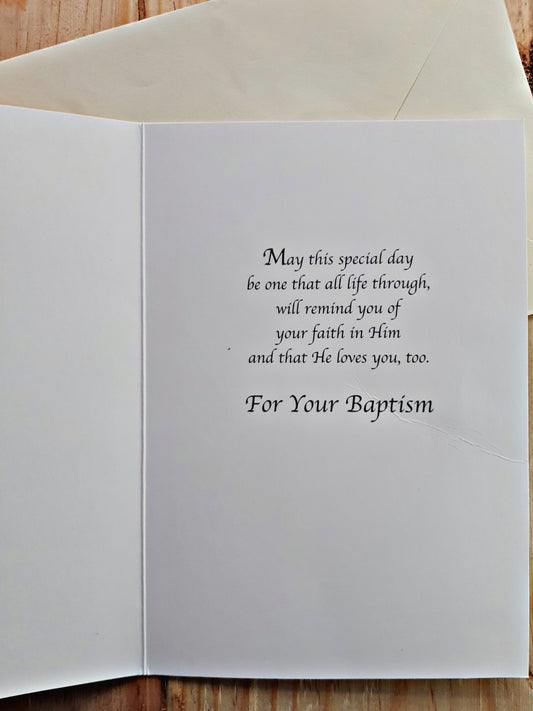 May this special day
be one that all life through,
will remind you of
your faith in Him
and that He loves you, too.
For Your Baptism